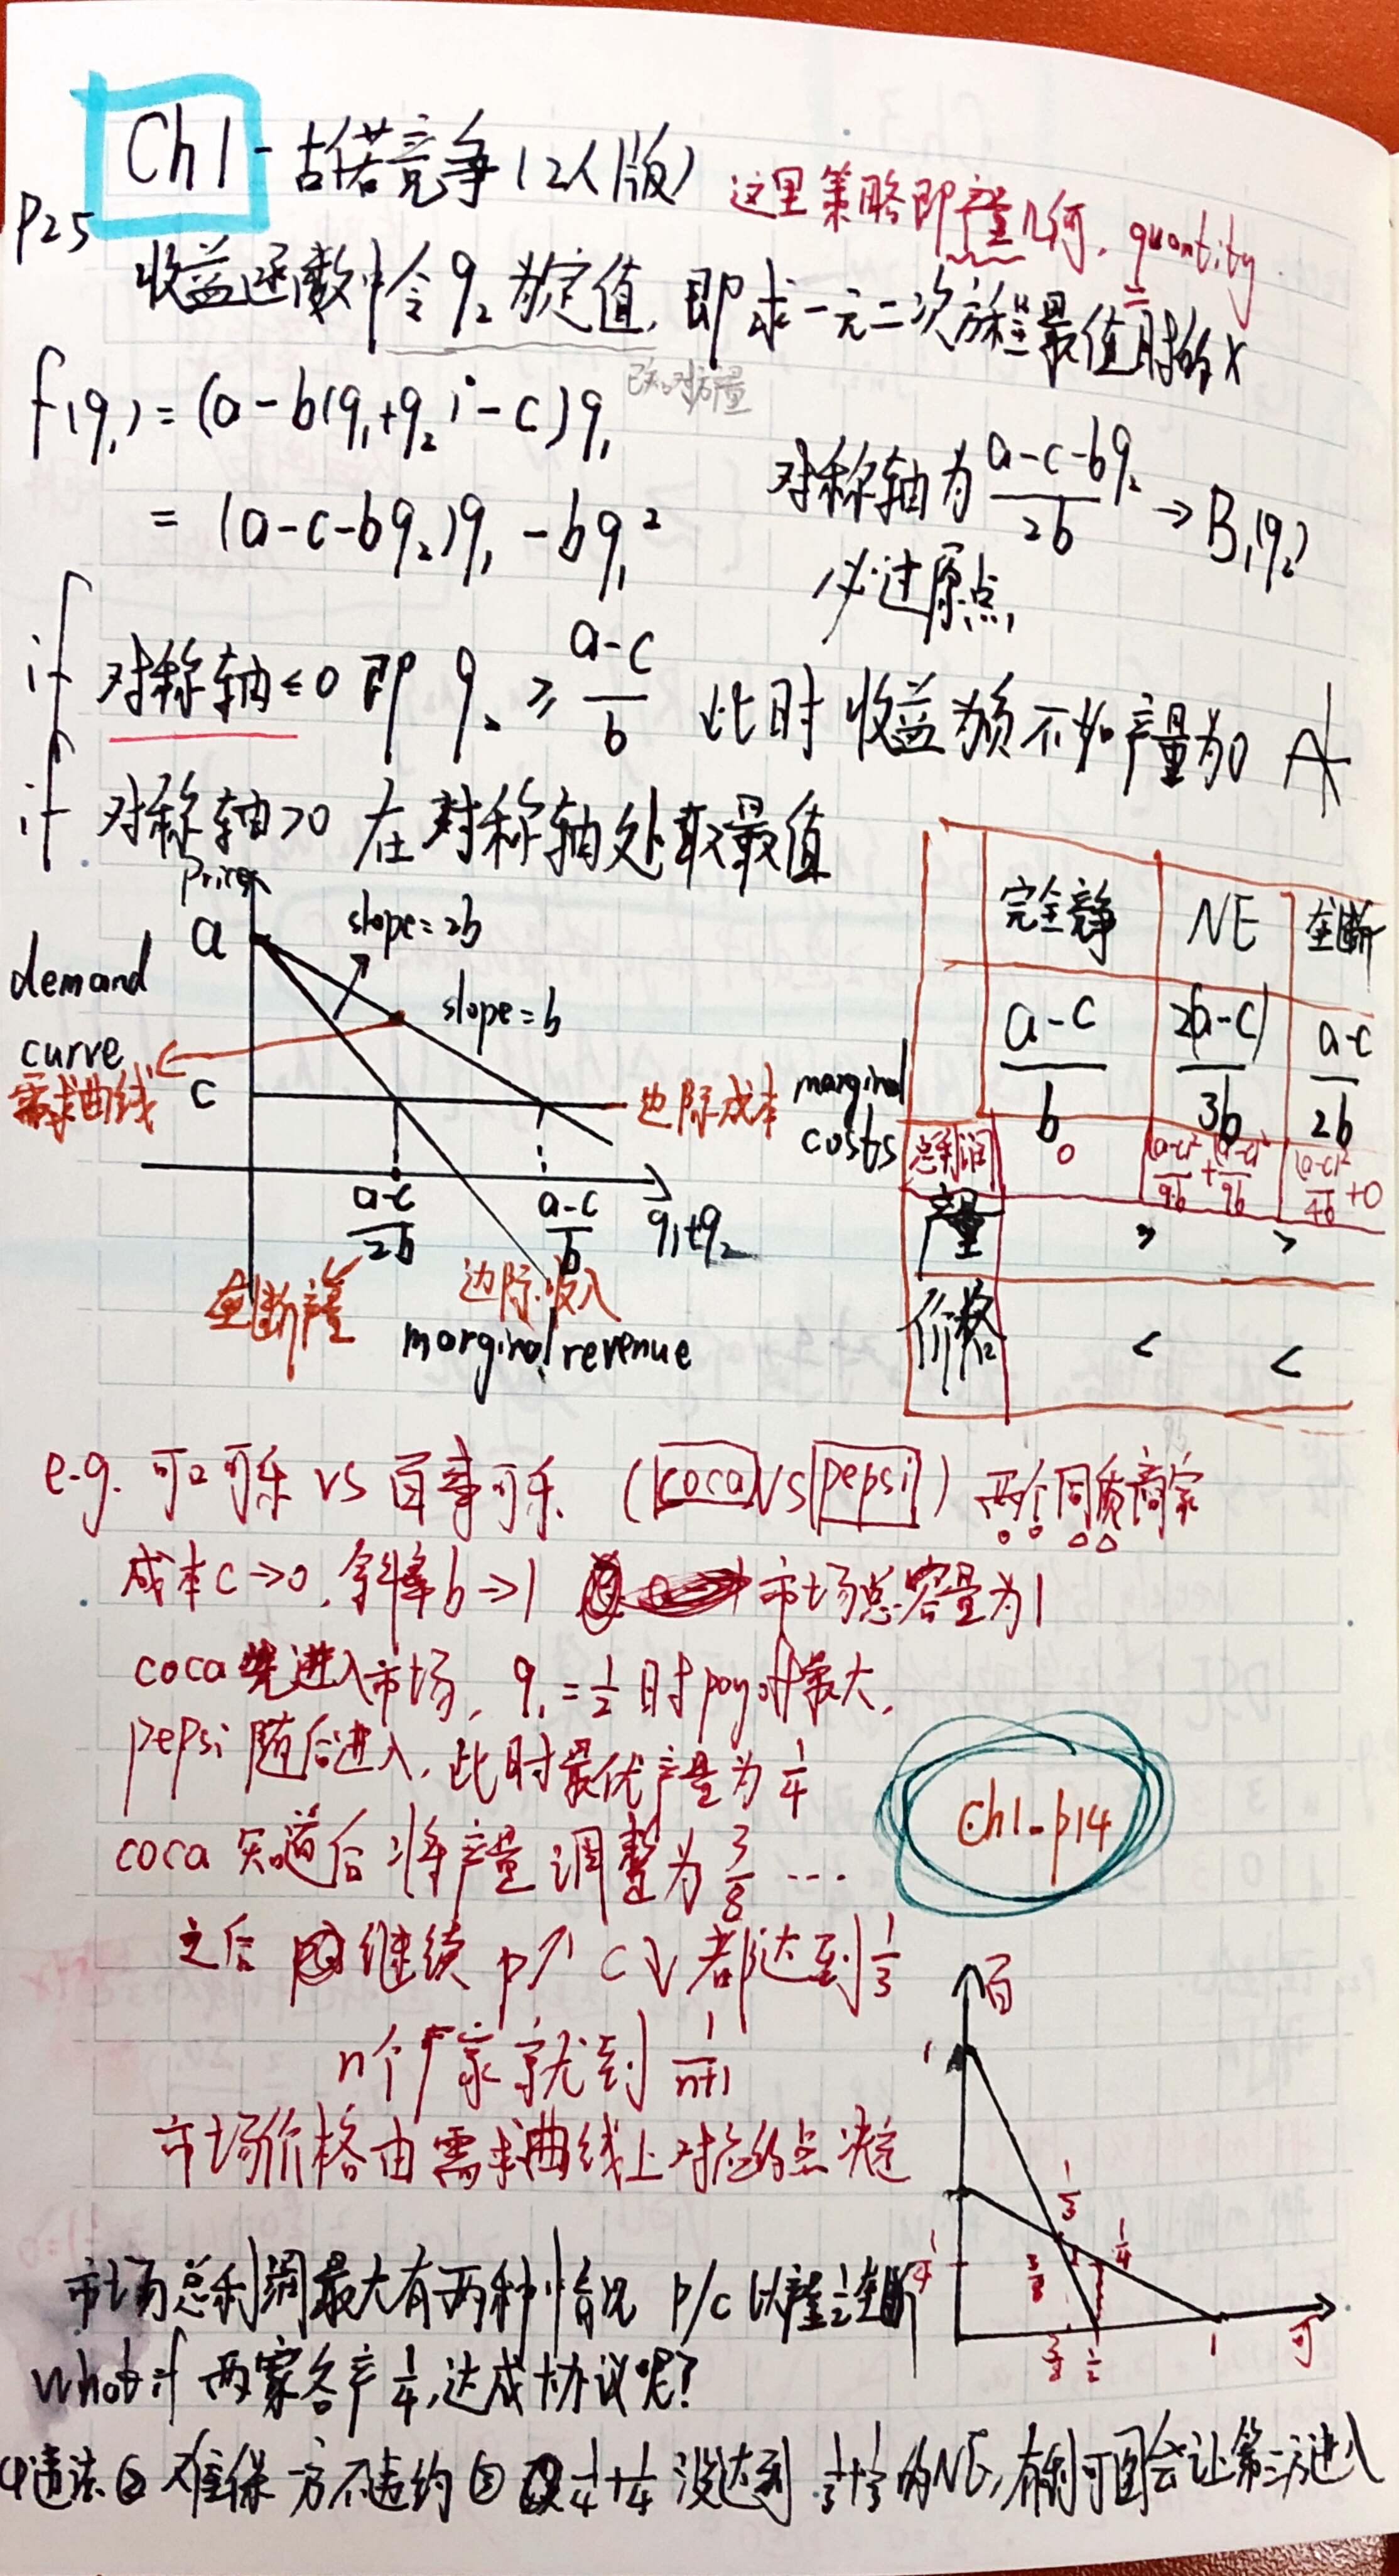 Ch1 - 古诺竞争(2人版)
这里策略即产量几何. quantity
P25
收益函数中令q₂为定值, 即求一元二次方程最值时的x
已知对方产量
f(q₁) = (a-b(q₁+q₂)-c)q₁
= (a-c-bq₂)q₁ - bq₁²
对称轴为 (a-c-bq₂)/2b → B₁(q₂)
必过原点,
if 对称轴≤0 即 q₂ ≥ (a-c)/b 此时收益为负不如产量为0
if 对称轴>0 在对称轴处取最值
Price
a
slope=2b
slope=b
demand
curve
需求曲线
c
边际成本
marginal
costs
(a-c)/2b
(a-c)/b
q₁+q₂
垄断产量
边际收入
marginal revenue
完全竞争 NE 垄断
(a-c)/b 2(a-c)/3b (a-c)/2b
总利润 0 (a-c)²/9b + (a-c)²/9b (a-c)²/4b +0
产量 > >
价格 < <
e.g. 可口可乐 vs 百事可乐 (coca vs pepsi) 两个同质商家
成本c→0, 斜率b→1 市场总容量为1
coca 先进入市场, q₁=1/2时payoff最大,
pepsi 随后进入, 此时最优产量为1/4
coca 知道后将产量调整为3/8 ...
之后 继续 p↗ c↘ 都达到1/3
n个厂家就到 1/(n+1)
市场价格由需求曲线上对应的点决定
Ch1-p14
百
1
1/3
1/4
1/4
3/8
3/8
1/2
1
可
市场总利润最大有两种情况 p/c 以产量1/2垄断
what if 两家各产1/4, 达成协议呢?
①违法 ② 难保一方不违约 ③ 1/4+1/4 没达到 1/3+1/3 的NE, 有利可图会让第三方进入